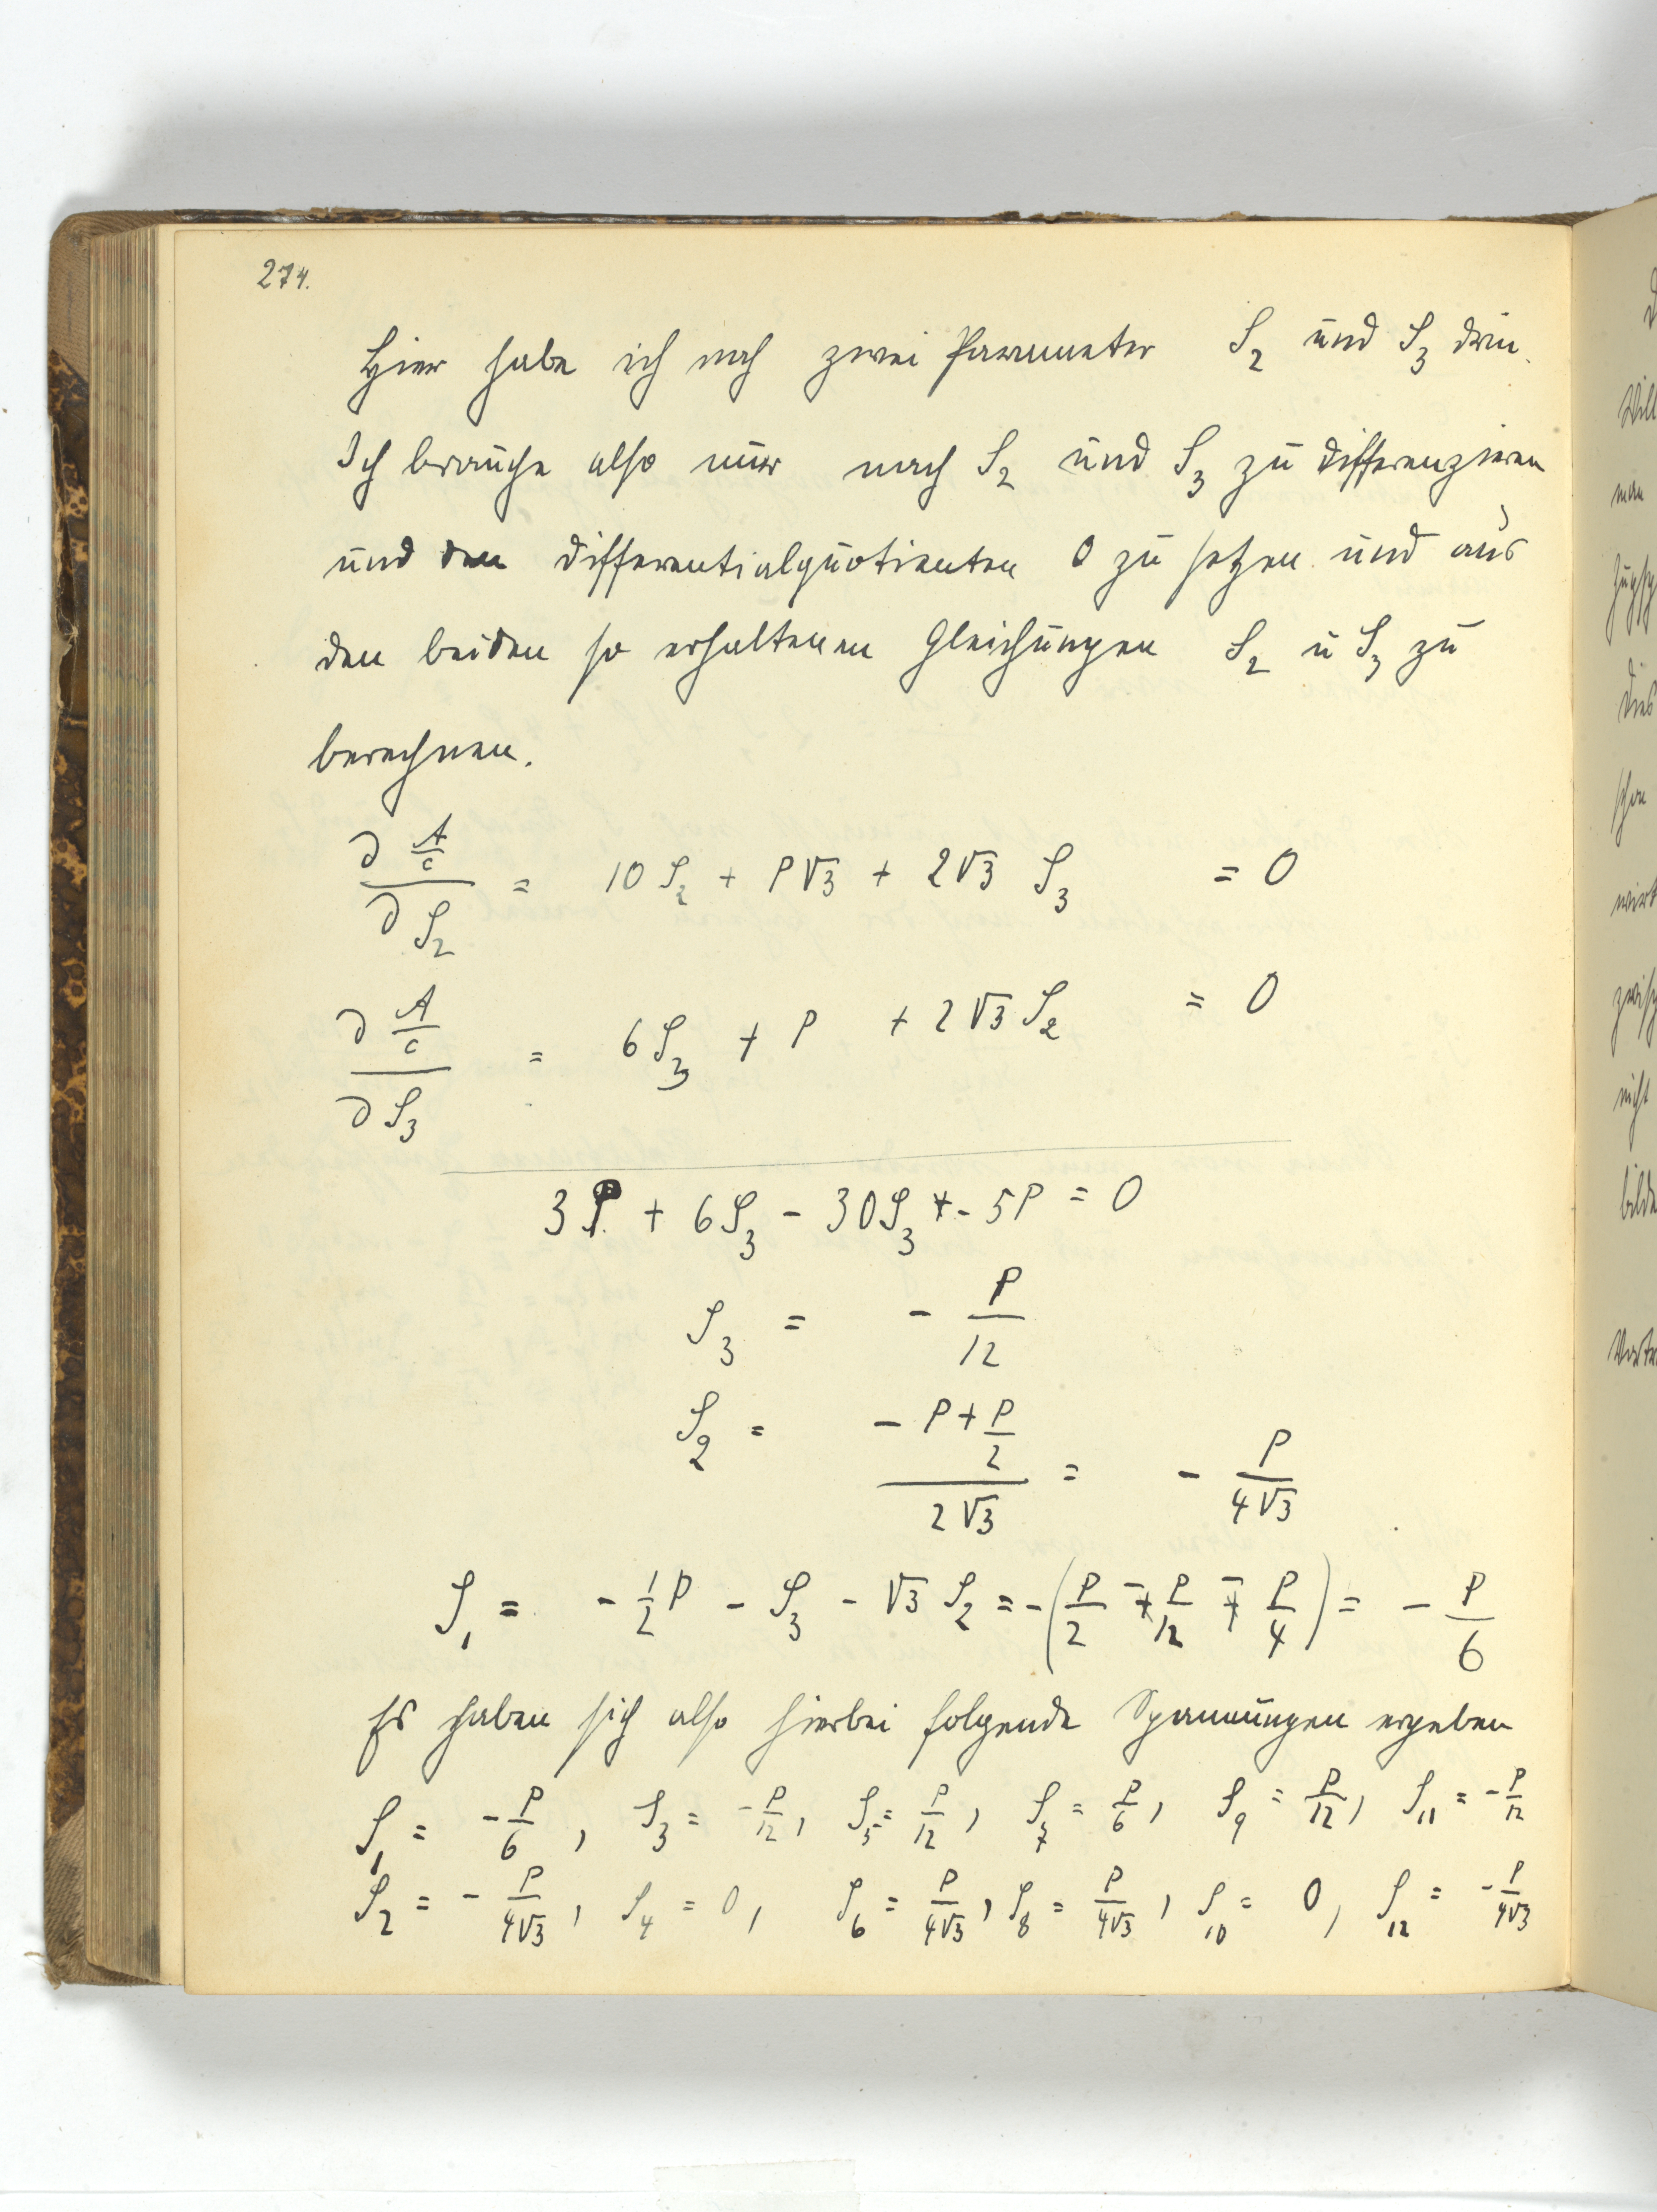 274.
Hier habe ich noch zwei Parameter S₂ und S₃ drin.
Ich brauche also nur nach S₂ und S₃ zu differenzieren
und den Differentialquotienten 0 zu setzen und aus
den beiden so erhaltenen Gleichungen S₂ u S₃ zu
berechnen.
∂ A/c / ∂ S₂ = 10 S₂ + P√3 + 2√3 S₃ = 0
∂ A/c / ∂ S₃ = 6 S₃ + P + 2√3 S₂ = 0
3P + 6S₃ - 30S₃ - 5P = 0
S₃ = - P/12
S₂ = (- P + P/2) / 2√3 = - P/4√3
S₁ = - 1/2 P - S₃ - √3 S₂ = - (P/2 - P/12 - P/4) = - P/6
Es haben sich also hierbei folgende Spannungen ergeben
S₁ = - P/6, S₃ = - P/12, S₅ = P/12, S₇ = P/6, S₉ = P/12, S₁₁ = - P/12
S₂ = - P/4√3, S₄ = 0, S₆ = P/4√3, S₈ = P/4√3, S₁₀ = 0, S₁₂ = - P/4√3